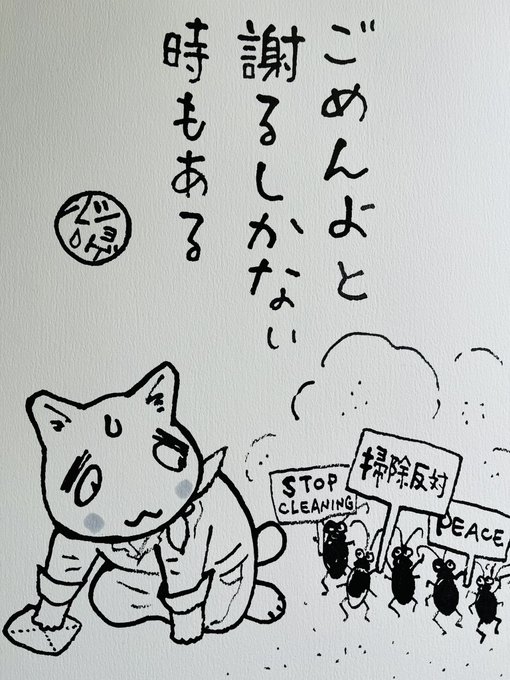 ごめんよと
謝るしかない
時もある
STOP
CLEANING
掃除反対
PEACE